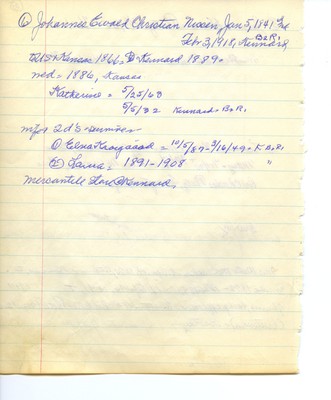 ① Johannes Ewald Christian Nissen, Jan 5, 1841
Feb 3, 1918, Kennard B&R.
to US & Kansas 1866, Kennard 1889.
md = 1886, Kansas
Katherine = 5/25/63
5/5/32 Kennard B&R.
2 d's
① Edna Krogaard = 10/5/87 - 3/16/49 = K B&R.
② Laura = 1891-1908 "
Mercantile Store @ Kennard.